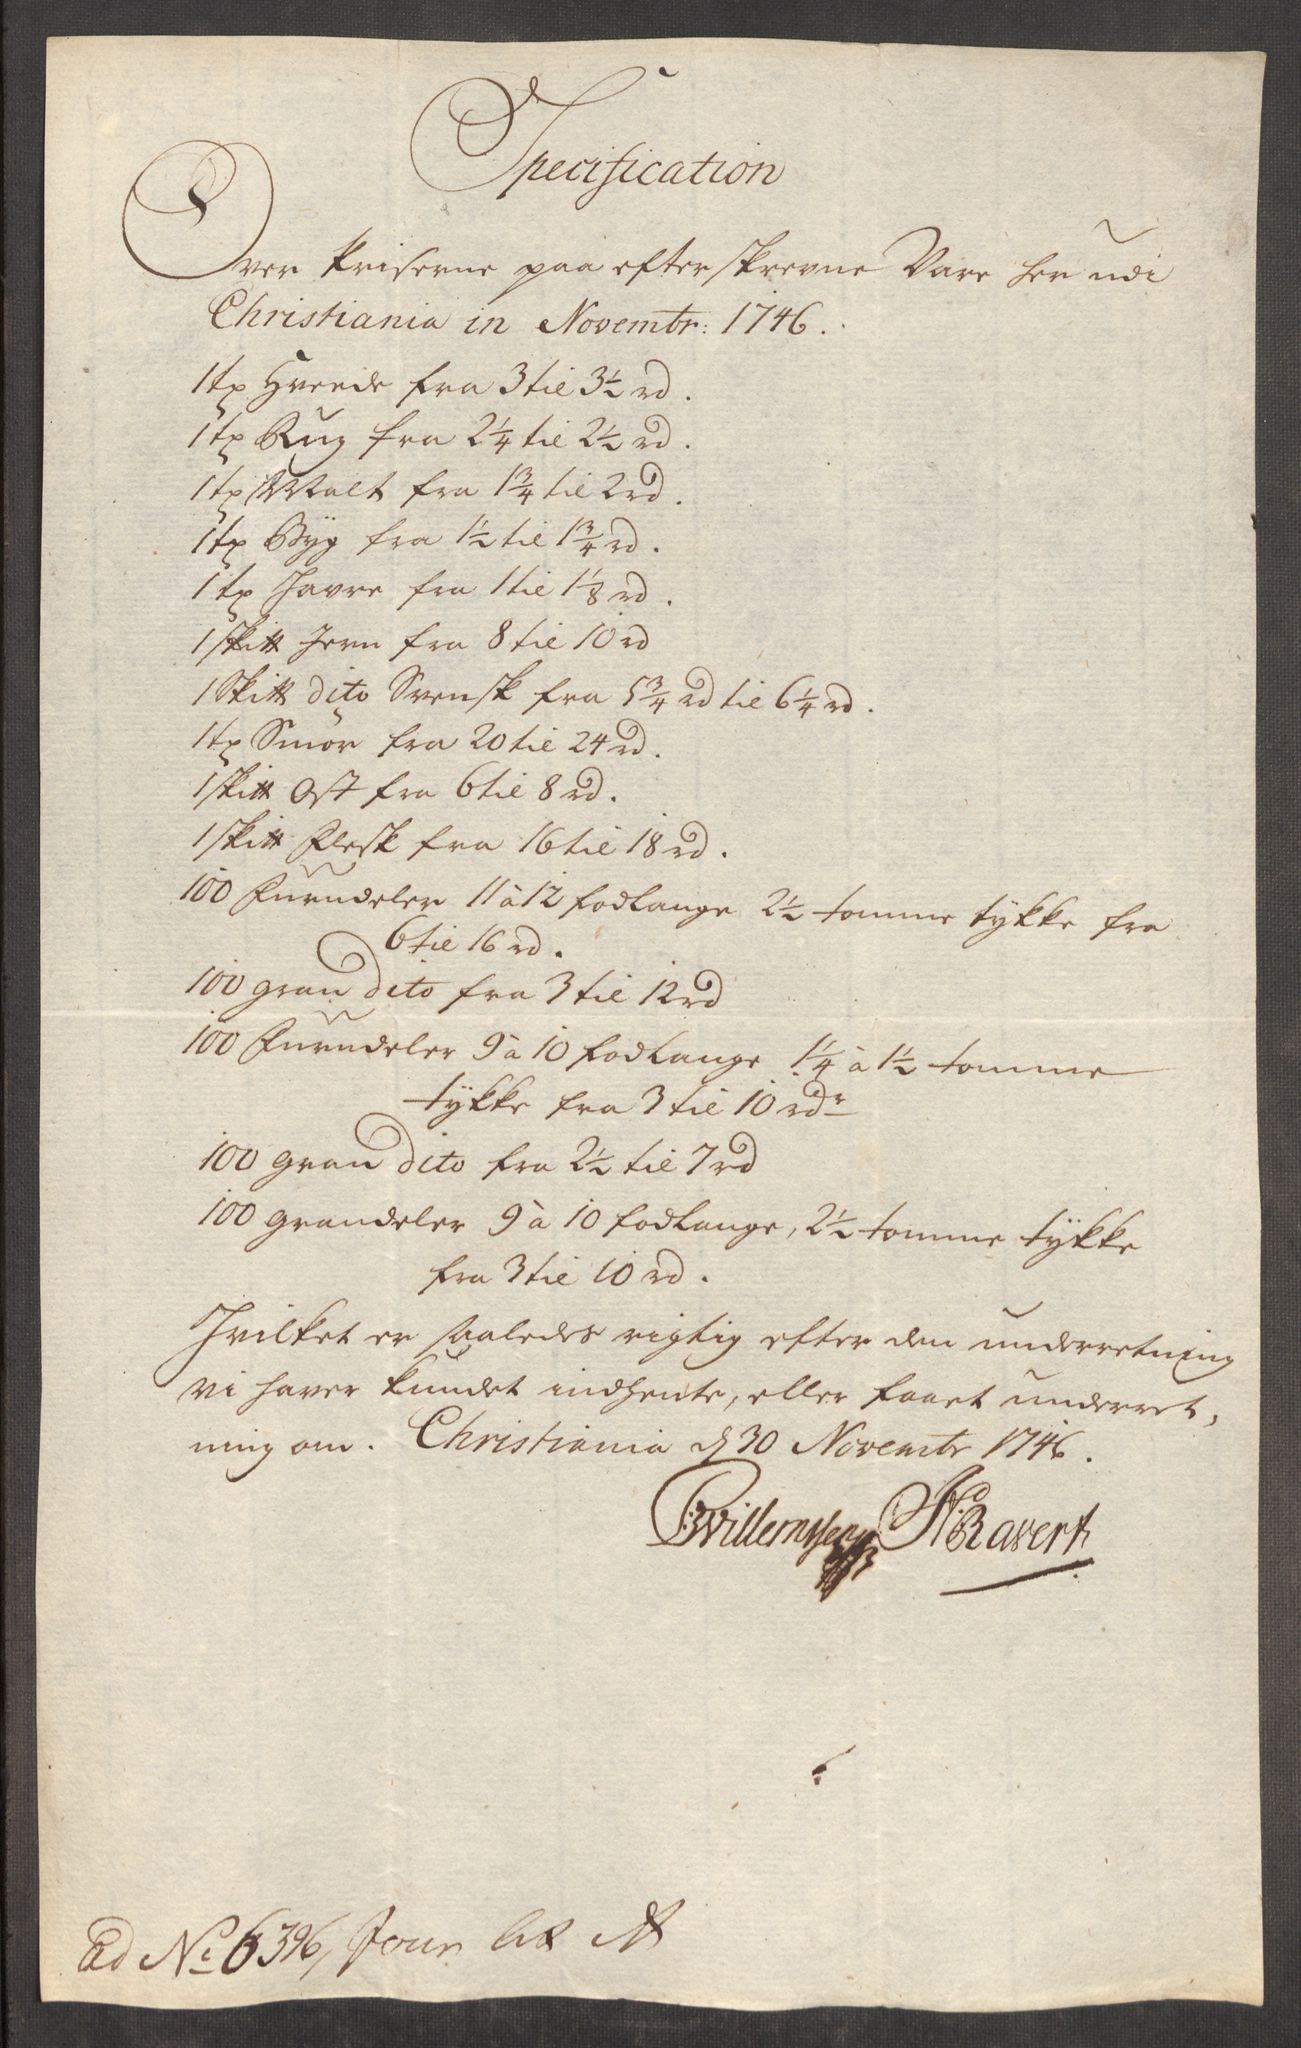 Specification
Over Priserne paa efterskrevne Vare her udi
Christiania in Novembr: 1746.
1 tø Hveede fra 3 til 3½ rd.
1 tø Rug fra 2¼ til 2½ rd.
1 tø Malt fra 1¾ til 2 rd.
1 tø Byg fra 1½ til 1¾ rd.
1 tø Havre fra 1 til 1⅛ rd.
1 skitt Jern fra 8 til 10 rd
1 Skitt dito Svensk fra 5¾ rd til 6¼ rd.
1 tø Smör fra 20 til 24 rd.
1 skitt Ost fra 6 til 8 rd.
1 skitt Flesk fra 16 til 18 rd.
100 Furudeler 11 à 12 fod Lange 2½ tomme tÿkke fra
6 til 16 rd.
100 gran dito fra 3 til 12 rd
100 Furudeler 9 à 10 fod Lange 1¼ à 1½ tomme
tÿkke fra 3 til 10 rdr
100 gran dito fra 2½ til 7 rd
100 grandeler 9 à 10 fod Lange, 2½ tomme tÿkke
fra 3 til 10 rd.
Hvilket er saaledes rigtig efter den underretning
vi haver kundet indhente, eller faaet underret,
ning om. Christiania d 30 Novembr 1746.
Willemsen Ravert
Ad No 6396, Jour Lit A